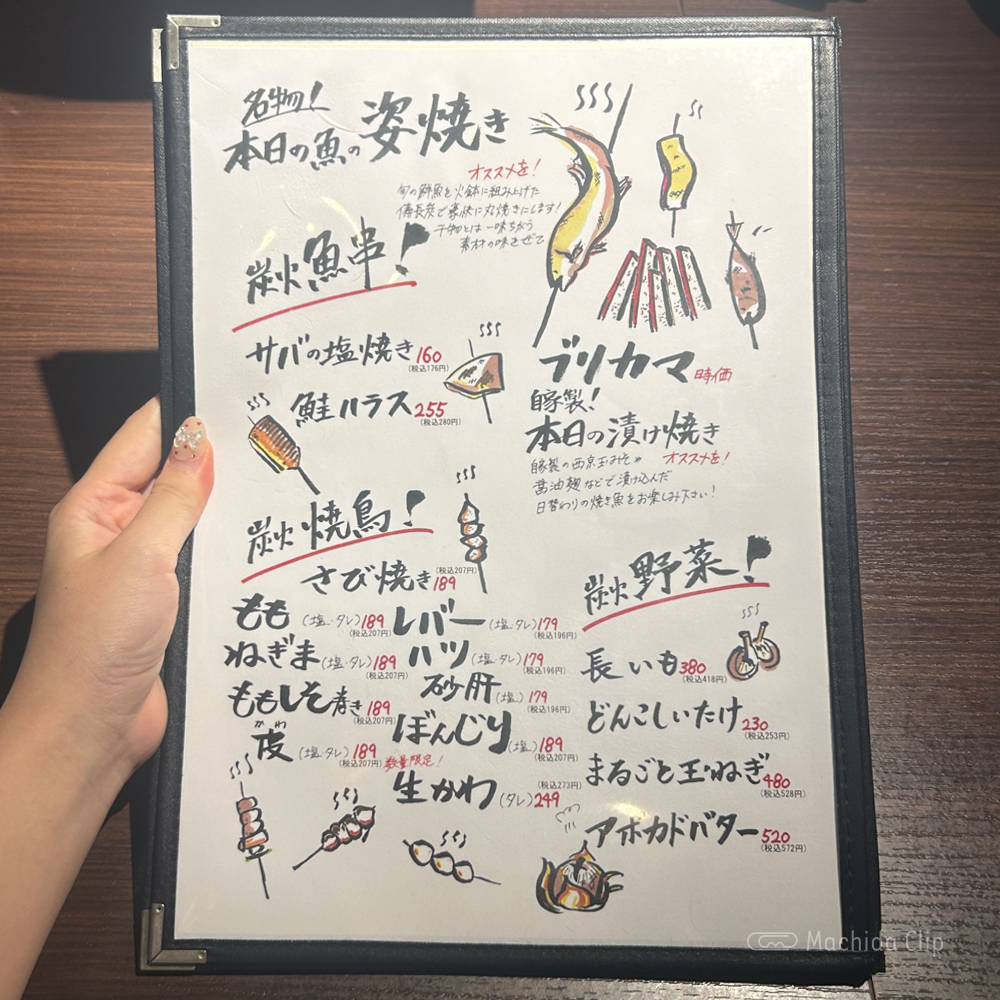 名物!
本日の魚の姿焼き
オススメを!
旬の鮮魚を火鉢に組み上げた
備長炭で豪快に丸焼きにします!
干物とは一味ちがう
素材の味をぜひ
炭火魚串!
サバの塩焼き 160
(税込176円)
鮭ハラス 255
(税込280円)
ブリカマ 時価
自家製!
本日の漬け焼き
オススメを!
自家製の西京玉みそや
醤油麹などで漬け込んだ
日替わりの焼き魚をお楽しみ下さい!
炭火焼鳥!
さび焼き 189
(税込207円)
もも (塩・タレ) 189
(税込207円)
ねぎま (塩・タレ) 189
(税込207円)
ももしそ巻き 189
(税込207円)
かわ
皮 (塩・タレ) 189
(税込207円)
レバー (塩・タレ) 179
(税込196円)
ハツ (塩・タレ) 179
(税込196円)
砂肝 (塩) 179
(税込196円)
ぼんじり (塩) 189
(税込207円)
数量限定!
生かわ (タレ) 249
(税込273円)
炭火野菜!
長いも 380
(税込418円)
どんこしいたけ 230
(税込253円)
まるごと玉ねぎ 480
(税込528円)
アボカドバター 520
(税込572円)
Machida Clip